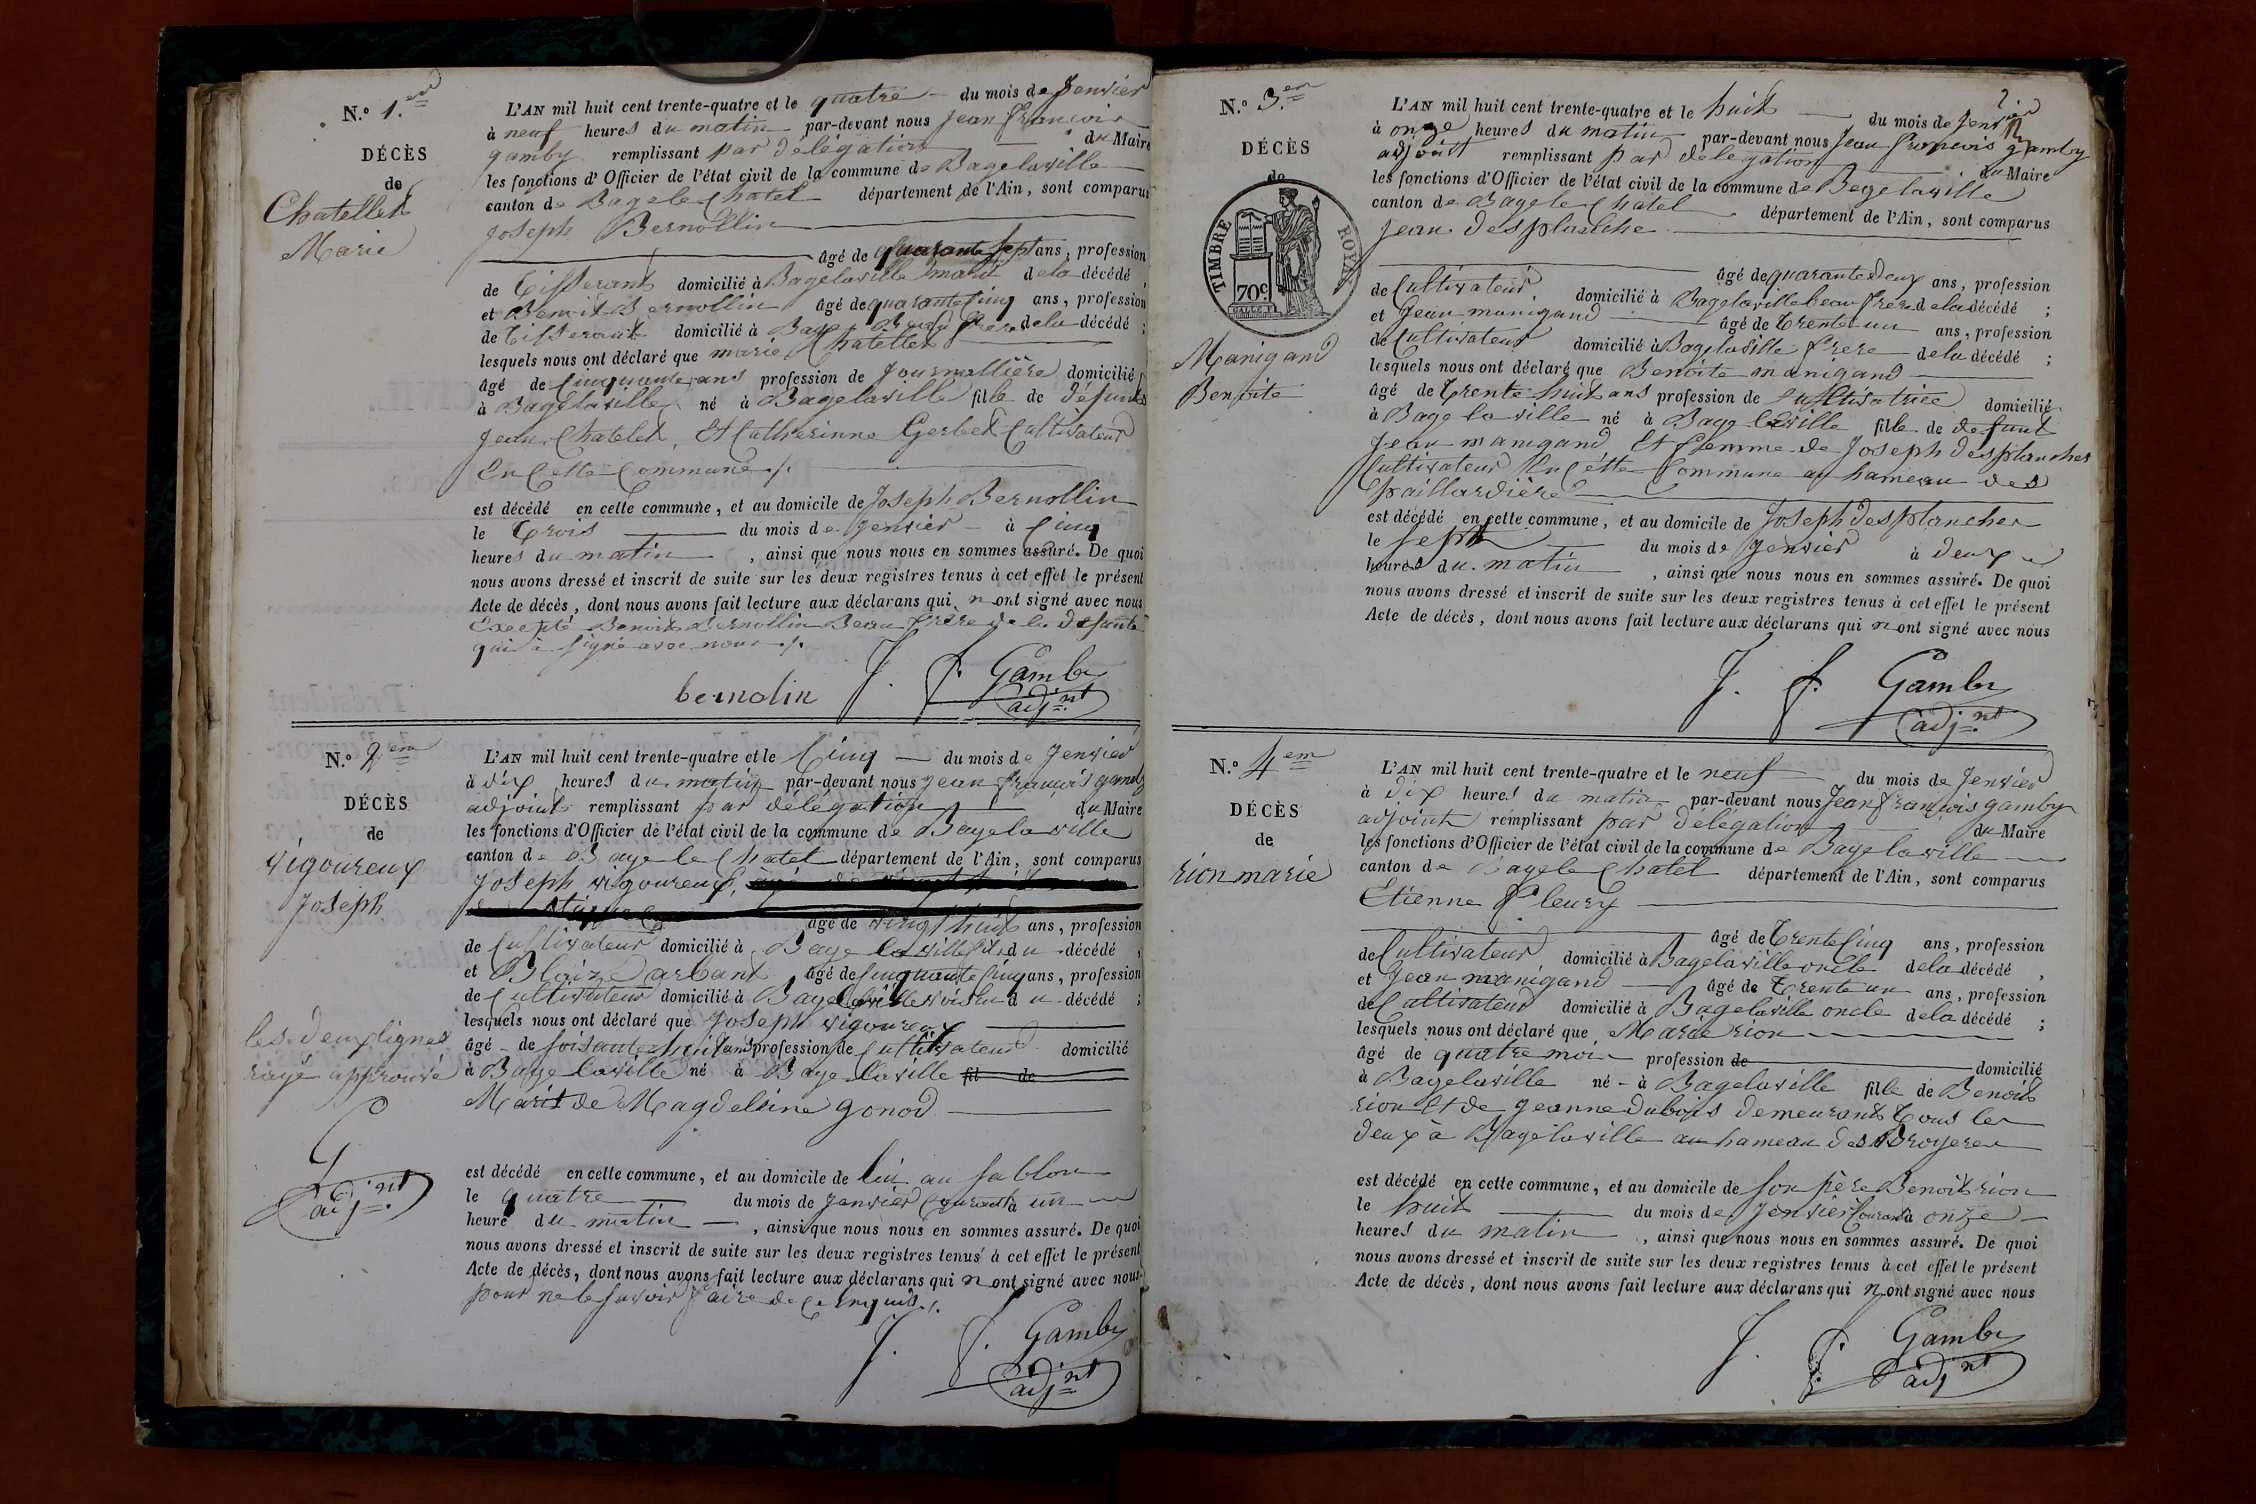 N.° 1.er
DÉCÈS
de
Chatellet
Marie
L'AN mil huit cent trente-quatre et le quatre du mois de Jenvier
à neuf heures du matin par-devant nous Jean françois
gamby remplissant par délégation du Maire
les fonctions d'Officier de l'état civil de la commune de Bagelaville
canton de Bage le Chatel département de l'Ain, sont comparus
Joseph Bernollin
âgé de quarante sept ans, profession
de Tisserant domicilié à Bagelaville mari de la décédé,
et Benoit Bernollin âgé de quarante Cinq ans, profession
de Tisserant domicilié à Bage Beau frere de la décédé ;
lesquels nous ont déclaré que marie Chatellet
âgé de Cinquante ans profession de Journallière domicilié
à Bagelaville né à Bagelaville fille de défunts
Jean Chatelet, Et Catherinne Gerbet Cultivateur
En Cette Commune ./.
est décédé en cette commune, et au domicile de Joseph Bernollin
le Trois du mois de Jenvier à Cinq
heures du matin, ainsi que nous nous en sommes assuré. De quoi
nous avons dressé et inscrit de suite sur les deux registres tenus à cet effet le présent
Acte de décès, dont nous avons fait lecture aux déclarans qui n ont signé avec nous
Excepté Benoit Bernollin Beau frere de la defunte
qui a signé avec nous ./.
bernolin J. f. Gamby
adj.nt
N.° 2em
DÉCÈS
de
Vigoureux
Joseph
les deux lignes
rayé approuvé
G
adj.nt
L'AN mil huit cent trente-quatre et le Cinq du mois de Jenvier
à dix heures du matin par-devant nous Jean françois gamby
adjoint remplissant par délégation du Maire
les fonctions d'Officier de l'état civil de la commune de Bagelaville
canton de Bage le Chatel département de l'Ain, sont comparus
Joseph vigoureux,
âgé de vingt huit ans, profession
de Cultivateur domicilié à Bage la ville fils du décédé,
et Blaize arbant âgé de Cinquante Cinq ans, profession
de Cultivateur domicilié à Bage laville voisin du décédé ;
lesquels nous ont déclaré que Joseph vigoureux
âgé de soisante huit ans profession de Cultivateur domicilié
à Bage laville né à Bage laville fil de
Marit de Magdeleine gonod
est décédé en cette commune, et au domicile de lui au sablon
le quatre du mois de Jenvier Courant à un
heure du matin, ainsi que nous nous en sommes assuré. De quoi
nous avons dressé et inscrit de suite sur les deux registres tenus à cet effet le présent
Acte de décès, dont nous avons fait lecture aux déclarans qui n ont signé avec nous
pour ne le savoir faire de Ce enquis ./.
J. f. Gamby
adj.nt
2
N.° 3.em
DÉCÈS
de
TIMBRE ROYAL
70c
Manigand
Benoite
L'AN mil huit cent trente-quatre et le huit du mois de Jenvier
à onze heures du matin par-devant nous Jean françois gamby
adjoint remplissant par délégation du Maire
les fonctions d'Officier de l'état civil de la commune de Bagelaville
canton de Bage le Chatel département de l'Ain, sont comparus
Jean desplanche
âgé de quarante deux ans, profession
de Cultivateur domicilié à Bagelaville beau frere de la décédé ;
et Jean manigand âgé de Trente un ans, profession
de Cultivateur domicilié à Bagelaville frere de la décédé ;
lesquels nous ont déclaré que Benoite manigand
âgé de Trente huit ans profession de Cultivatrice domicilié
à Bage la ville né à Bage laville fille de defunt
Jean manigand Et femme de Joseph desplanches
Cultivateur En Cette Commune au hameau des
paillardière
est décédé en cette commune, et au domicile de Joseph desplanches
le sept du mois de Jenvier à deux
heures du matin, ainsi que nous nous en sommes assuré. De quoi
nous avons dressé et inscrit de suite sur les deux registres tenus à cet effet le présent
Acte de décès, dont nous avons fait lecture aux déclarans qui n ont signé avec nous
J. f. Gamby
adj.nt
N.° 4em
DÉCÈS
de
rion marie
L'AN mil huit cent trente-quatre et le neuf du mois de Jenvier
à dix heures du matin par-devant nous Jean françois gamby
adjoint remplissant par délégation du Maire
les fonctions d'Officier de l'état civil de la commune de Bagelaville
canton de Bage le Chatel département de l'Ain, sont comparus
Etienne fleury
âgé de Trente Cinq ans, profession
de Cultivateur domicilié à Bagelaville oncle de la décédé,
et Jean manigand âgé de Trente un ans, profession
de Cultivateur domicilié à Bagelaville oncle de la décédé ;
lesquels nous ont déclaré que Marie rion
âgé de quatre moi profession de domicilié
à Bagelaville né à Bagelaville fille de Benoit
rion Et de Jeanne Dubois demeurant Tous les
deux à Bagelaville au hameau des Broyere
est décédé en cette commune, et au domicile de son père Benoit rion
le huit du mois de Jenvier Courant à onze
heures du matin, ainsi que nous nous en sommes assuré. De quoi
nous avons dressé et inscrit de suite sur les deux registres tenus à cet effet le présent
Acte de décès, dont nous avons fait lecture aux déclarans qui n ont signé avec nous
J. f. Gamby
adj.nt